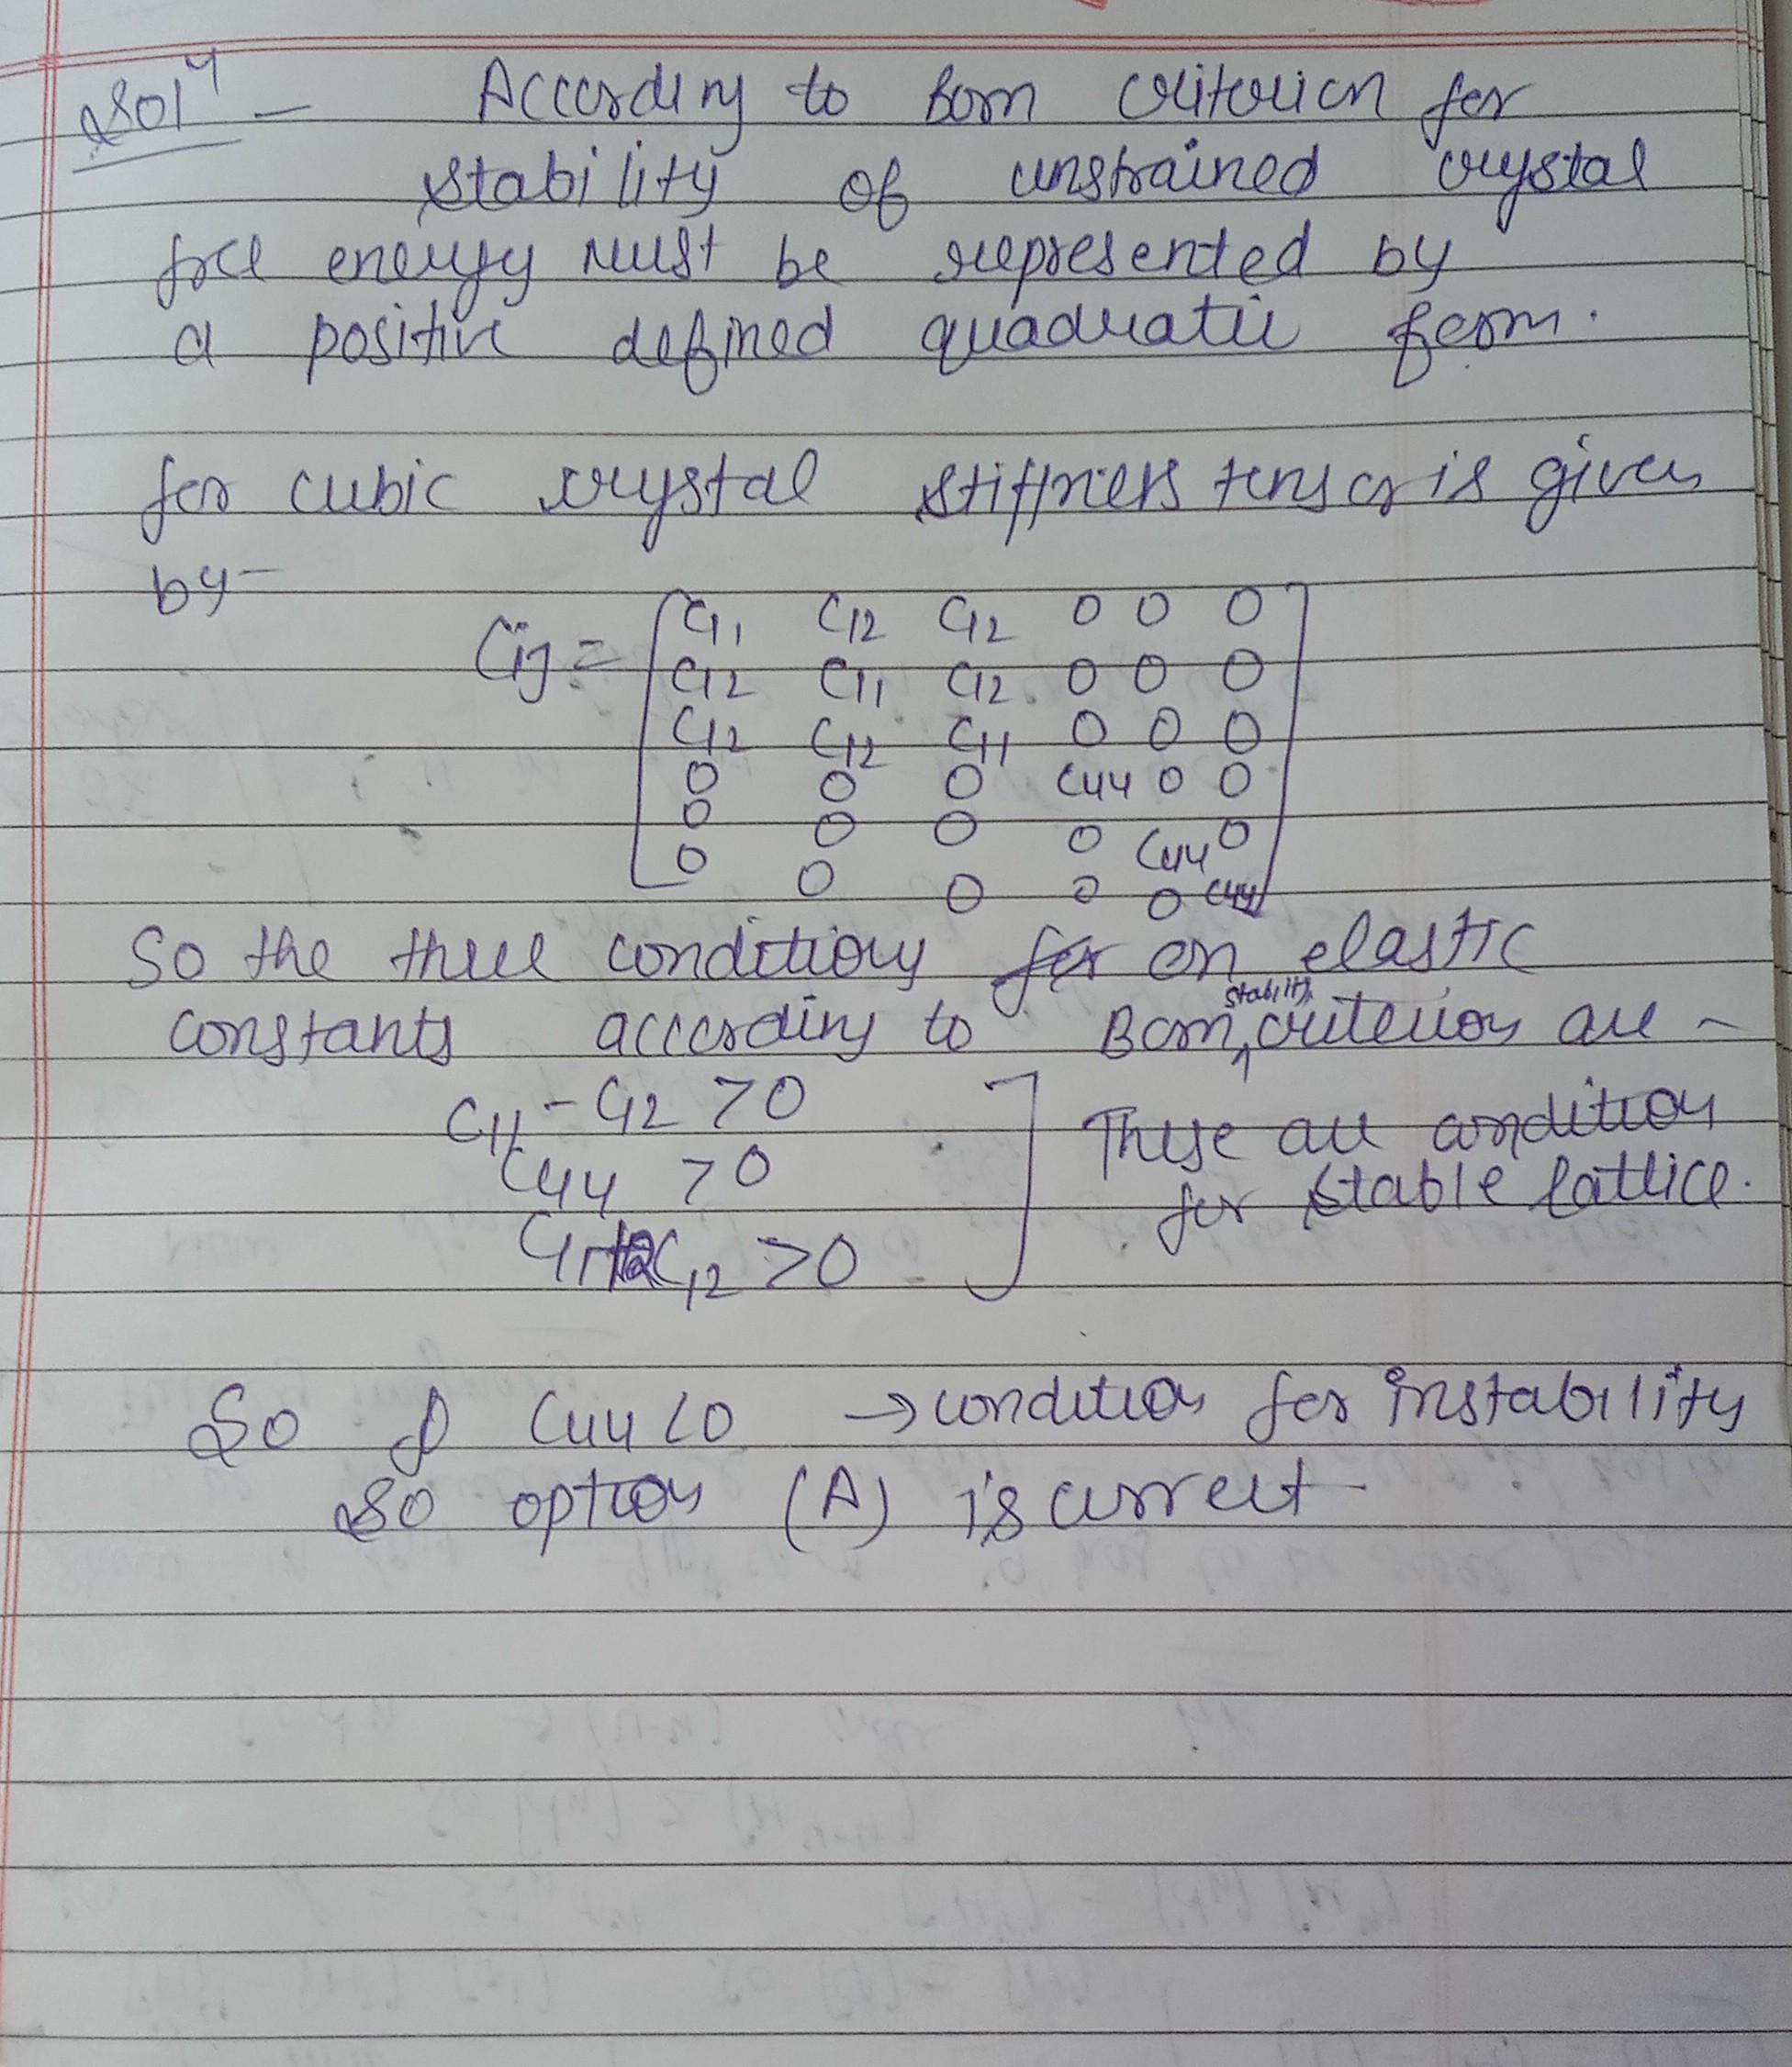 Solⁿ — According to Born criterion for
stability of unstrained crystal
free energy must be represented by
a positive defined quadratic form.
for cubic crystal stiffness tensor is given
by-
Cij = [ C11 C12 C12 0 0 0
C12 C11 C12 0 0 0
C12 C12 C11 0 0 0
0 0 0 C44 0 0
0 0 0 0 C44 0
0 0 0 0 0 C44 ]
So the three conditions for on elastic
constants according to Born stability criterion are -
C11 - C12 > 0
C44 > 0
C11 + 2C12 > 0
These are condition
for stable lattice.
So C44 < 0 → condition for instability
So option (A) is correct